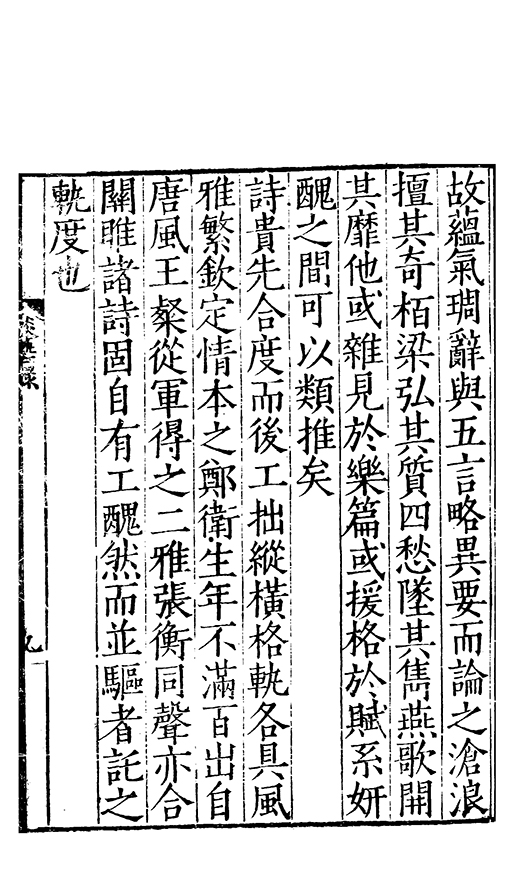 故蘊氣琱辭與五言略異要而論之滄浪
擅其奇栢梁弘其質四愁墜其雋燕歌開
其靡他或雜見於樂篇或援格於賦系妍
醜之間可以類推矣
詩貴先合度而後工拙縱橫格軌各具風
雅繁欽定情本之鄭衛生年不滿百出自
唐風王粲從軍得之二雅張衡同聲亦合
關雎諸詩固自有工醜然而並驅者託之
軌度也
九